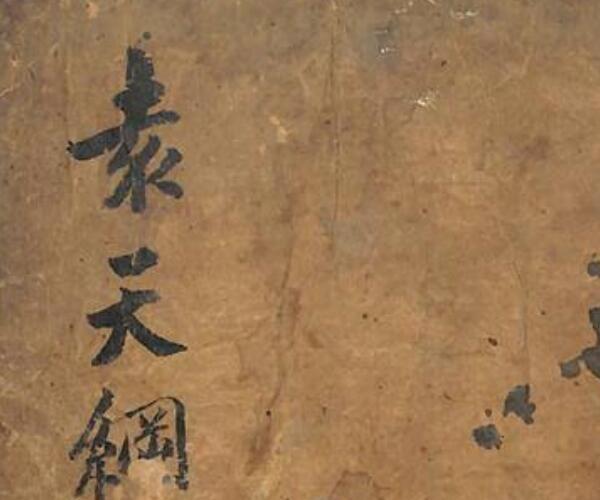 袁天綱